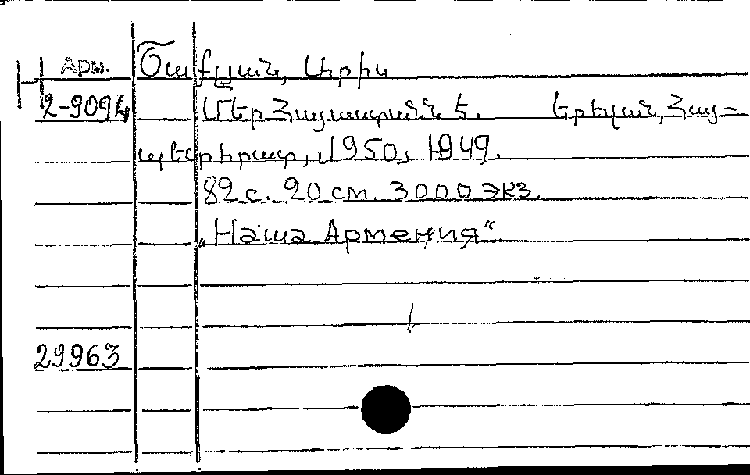 Арм. Ծափյան, Սիրի
2-9094 Մեր Հայաստանն է. Երևան, Հայ-
պետհրատ, 1950, 1949.
82 с. 20 см. 3000 экз.
„Наша Армения“
29963